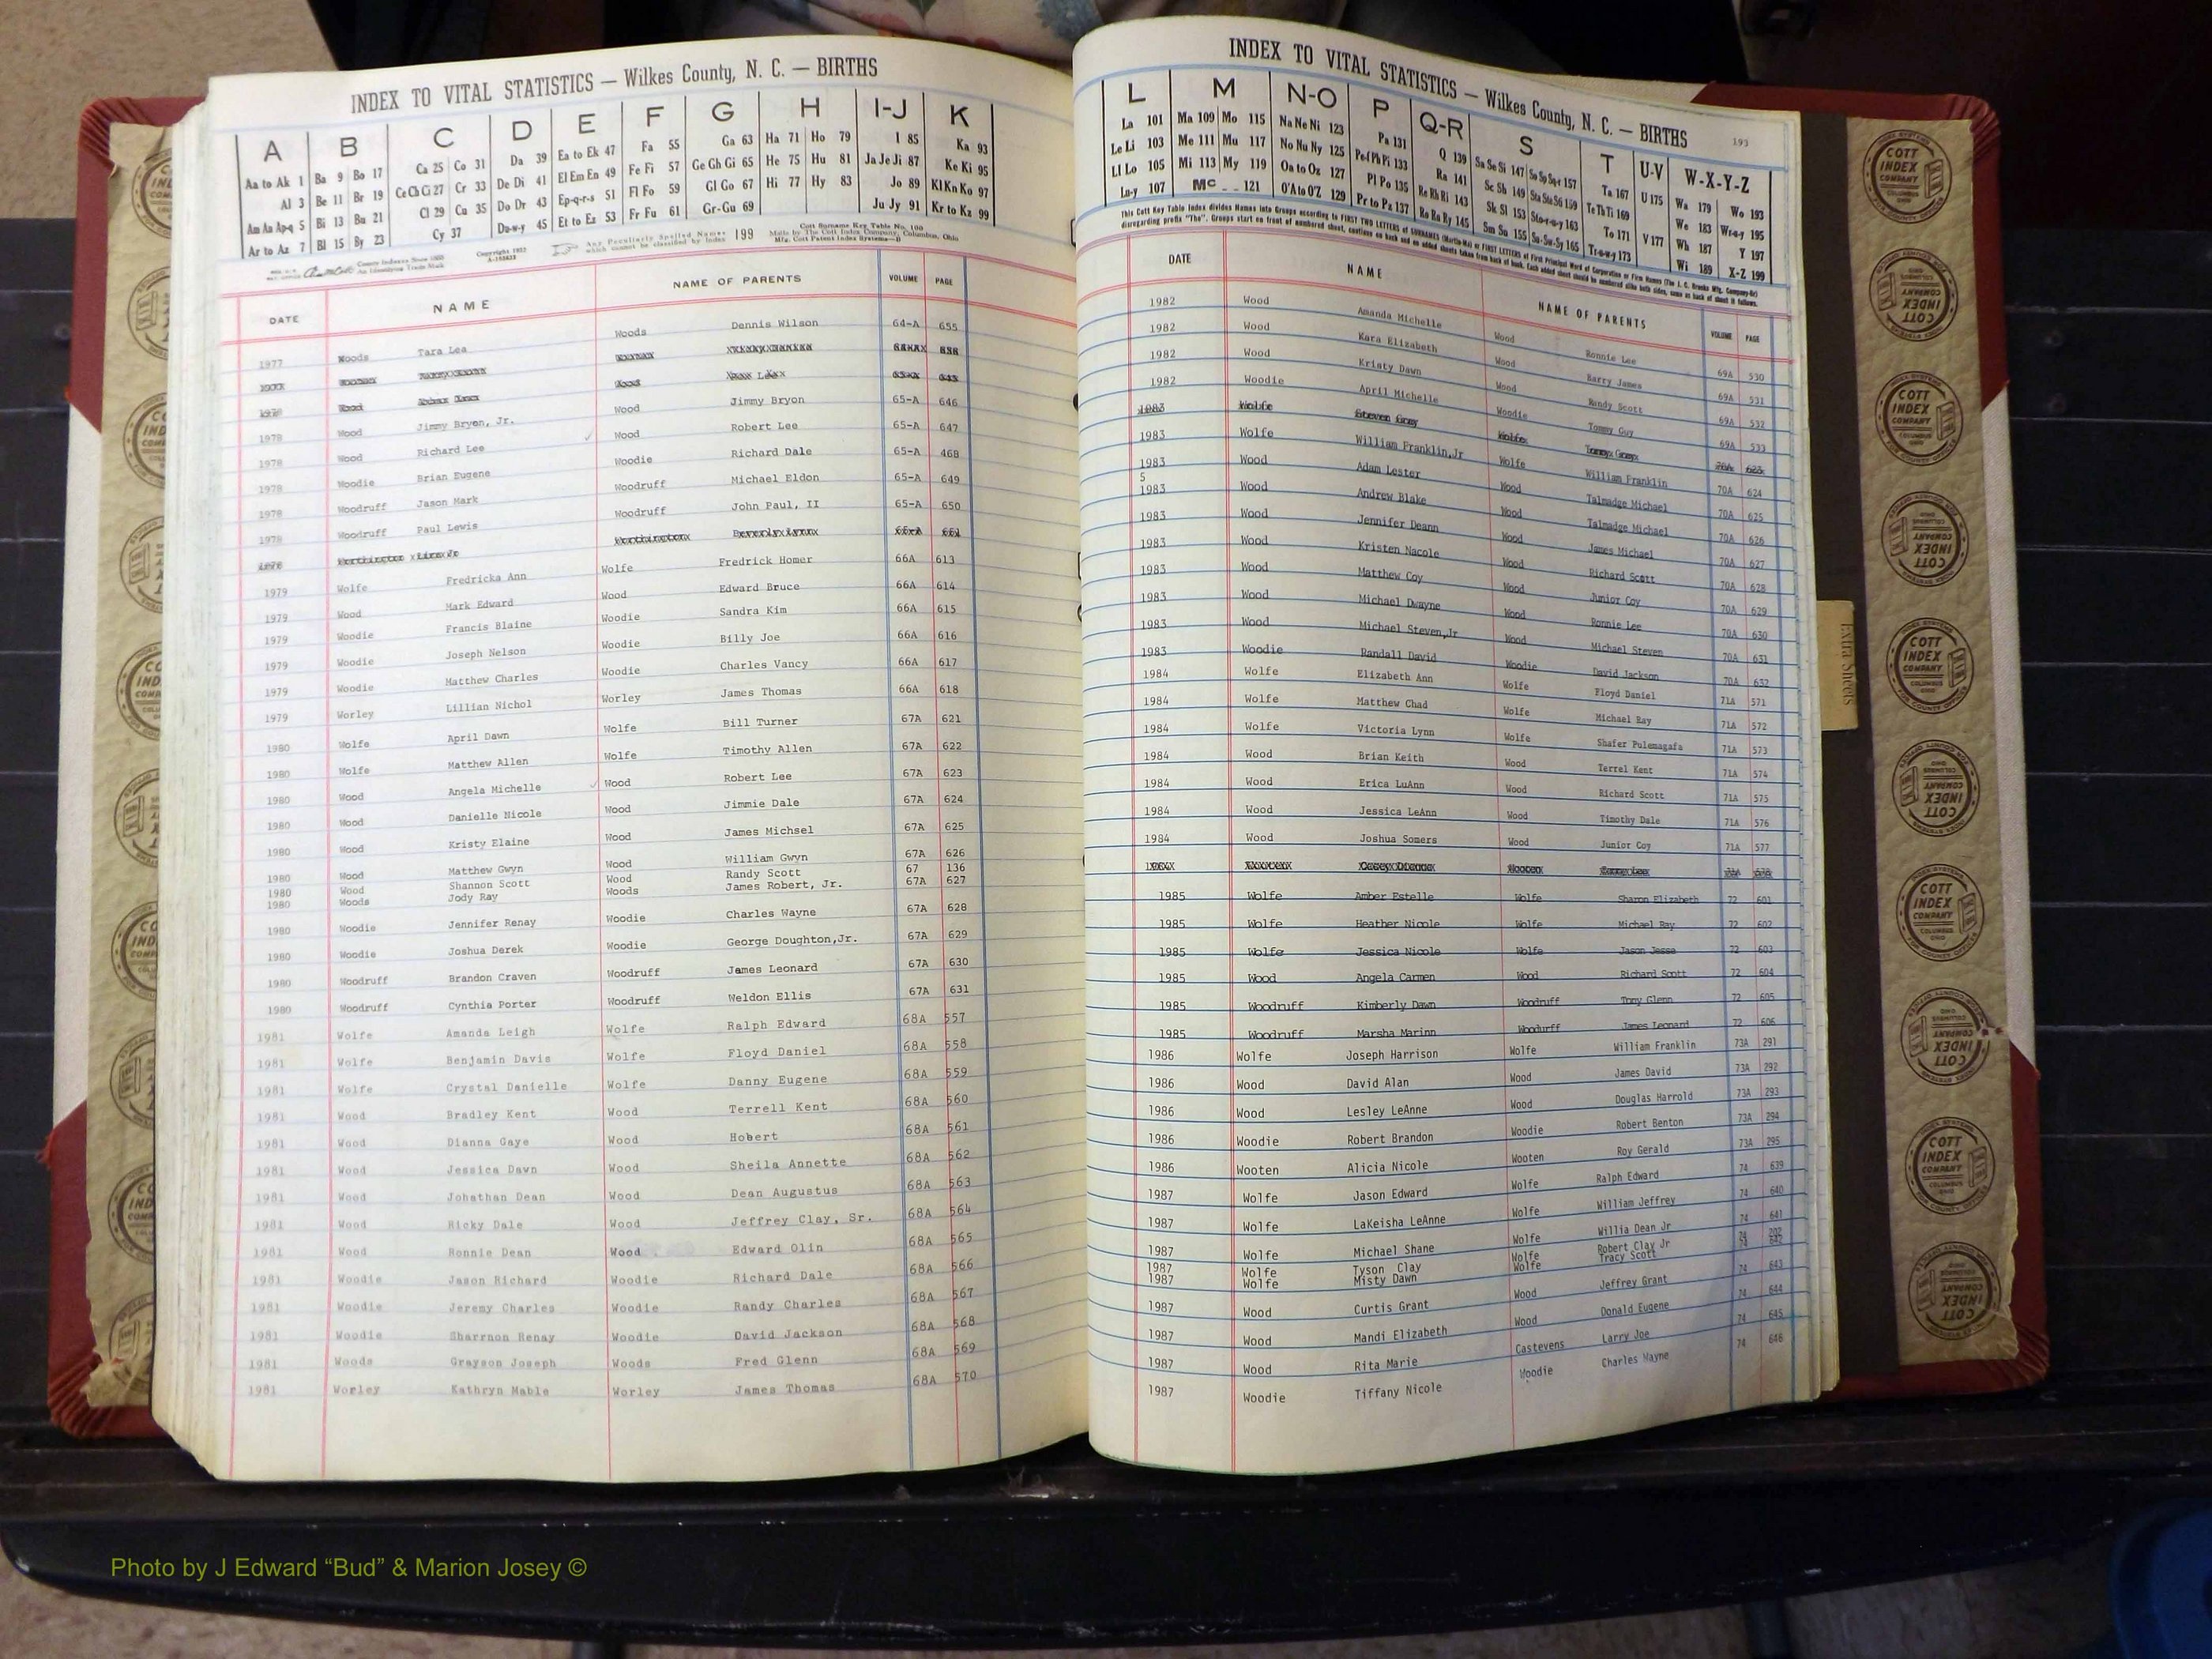 INDEX TO VITAL STATISTICS — Wilkes County, N. C. — BIRTHS
A B C D E F G H I-J K
Aa to Ak 1 Ba 9 Bo 17 Ca 25 Co 31 Da 39 Ea to Ek 47 Fa 55 Ga 63 Ha 71 Ho 79 I 85 Ka 93
Al 3 Be 11 Br 19 Ce Ch Ci 27 Cr 33 De Di 41 El Em En 49 Fe Fi 57 Ge Gh Gi 65 He 75 Hu 81 Ja Je Ji 87 Ke Ki 95
Am An Ap-q 5 Bi 13 Bu 21 Cl 29 Cu 35 Do Dr 43 Ep-q-r-s 51 Fl Fo 59 Gl Go 67 Hi 77 Hy 83 Jo 89 Kl Kn Ko 97
Ar to Az 7 Bl 15 By 23 Cy 37 Du-w-y 45 Et to Ez 53 Fr Fu 61 Gr-Gu 69 Ju Jy 91 Kr to Kz 99
Any Peculiarly Spelled Names which cannot be classified by Index 199
Cott Surname Key Table No. 100
Made by The Cott Index Company, Columbus, Ohio
DATE NAME NAME OF PARENTS VOLUME PAGE
1977 Woods Tara Lea Woods Dennis Wilson 64-A 655
1978 Wood Jimmy Bryon, Jr. Wood Jimmy Bryon 65-A 646
1978 Wood Richard Lee Wood Robert Lee 65-A 647
1978 Woodie Brian Eugene Woodie Richard Dale 65-A 468
1978 Woodruff Jason Mark Woodruff Michael Eldon 65-A 649
1978 Woodruff Paul Lewis Woodruff John Paul, II 65-A 650
1979 Wolfe Fredricka Ann Wolfe Fredrick Homer 66A 613
1979 Wood Mark Edward Wood Edward Bruce 66A 614
1979 Woodie Francis Blaine Woodie Sandra Kim 66A 615
1979 Woodie Joseph Nelson Woodie Billy Joe 66A 616
1979 Woodie Matthew Charles Woodie Charles Vancy 66A 617
1979 Worley Lillian Nichol Worley James Thomas 66A 618
1980 Wolfe April Dawn Wolfe Bill Turner 67A 621
1980 Wolfe Matthew Allen Wolfe Timothy Allen 67A 622
1980 Wood Angela Michelle Wood Robert Lee 67A 623
1980 Wood Danielle Nicole Wood Jimmie Dale 67A 624
1980 Wood Kristy Elaine Wood James Michsel 67A 625
1980 Wood Matthew Gwyn Wood William Gwyn 67A 626
1980 Wood Shannon Scott Wood Randy Scott 67 136
1980 Woods Jody Ray Woods James Robert, Jr. 67A 627
1980 Woodie Jennifer Renay Woodie Charles Wayne 67A 628
1980 Woodie Joshua Derek Woodie George Doughton,Jr. 67A 629
1980 Woodruff Brandon Craven Woodruff James Leonard 67A 630
1980 Woodruff Cynthia Porter Woodruff Weldon Ellis 67A 631
1981 Wolfe Amanda Leigh Wolfe Ralph Edward 68A 557
1981 Wolfe Benjamin Davis Wolfe Floyd Daniel 68A 558
1981 Wolfe Crystal Danielle Wolfe Danny Eugene 68A 559
1981 Wood Bradley Kent Wood Terrell Kent 68A 560
1981 Wood Dianna Gaye Wood Hobert 68A 561
1981 Wood Jessica Dawn Wood Sheila Annette 68A 562
1981 Wood Johathan Dean Wood Dean Augustus 68A 563
1981 Wood Ricky Dale Wood Jeffrey Clay, Sr. 68A 564
1981 Wood Ronnie Dean Wood Edward Olin 68A 565
1981 Woodie Jason Richard Woodie Richard Dale 68A 566
1981 Woodie Jeremy Charles Woodie Randy Charles 68A 567
1981 Woodie Sharrnon Renay Woodie David Jackson 68A 568
1981 Woods Grayson Joseph Woods Fred Glenn 68A 569
1981 Worley Kathryn Mable Worley James Thomas 68A 570
INDEX TO VITAL STATISTICS — Wilkes County, N. C. — BIRTHS 193
L M N-O P Q-R S T U-V W-X-Y-Z
La 101 Ma 109 Mo 115 Na Ne Ni 123 Pa 131 Q 139 Sa Se Si 147 So Sp Sq-r 157 Ta 167 U 175 Wa 179 Wo 193
Le Li 103 Me 111 Mu 117 No Nu Ny 125 Pe-f Ph Pi 133 Ra 141 Sc Sh 149 Sta Ste Sti 159 Te Th Ti 169 V 177 We 183 Wr-u-y 195
Ll Lo 105 Mi 113 My 119 Oa to Oz 127 Pl Po 135 Re Rh Ri 143 Sk Sl 153 Sto-r-u-y 163 To 171 Wh 187 Y 197
Lu-y 107 Mc 121 O'A to O'Z 129 Pr to Pz 137 Ro Ru Ry 145 Sm Sn 155 Su-Sw-Sy 165 Tr-u-w-y 173 Wi 189 X-Z 199
DATE NAME NAME OF PARENTS VOLUME PAGE
1982 Wood Amanda Michelle Wood Ronnie Lee 69A 530
1982 Wood Kara Elizabeth Wood Barry James 69A 531
1982 Wood Kristy Dawn Wood Randy Scott 69A 532
1982 Woodie April Michelle Woodie Tommy Guy 69A 533
1983 Wolfe Steven Gray Wolfe
1983 Wolfe William Franklin,Jr Wolfe William Franklin 70A 624
1983 Wood Adam Lester Wood Talmadge Michael 70A 625
5
1983 Wood Andrew Blake Wood Talmadge Michael 70A 626
1983 Wood Jennifer Deann Wood James Michael 70A 627
1983 Wood Kristen Nacole Wood Richard Scott 70A 628
1983 Wood Matthew Coy Wood Junior Coy 70A 629
1983 Wood Michael Dwayne Wood Ronnie Lee 70A 630
1983 Wood Michael Steven,Jr Wood Michael Steven 70A 631
1983 Woodie Randall David Woodie David Jackson 70A 632
1984 Wolfe Elizabeth Ann Wolfe Floyd Daniel 71A 571
1984 Wolfe Matthew Chad Wolfe Michael Ray 71A 572
1984 Wolfe Victoria Lynn Wolfe Shafer Pulemagafa 71A 573
1984 Wood Brian Keith Wood Terrel Kent 71A 574
1984 Wood Erica LuAnn Wood Richard Scott 71A 575
1984 Wood Jessica LeAnn Wood Timothy Dale 71A 576
1984 Wood Joshua Somers Wood Junior Coy 71A 577
1985 Wolfe Amber Estelle Wolfe Sharon Elizabeth 72 601
1985 Wolfe Heather Nicole Wolfe Michael Ray 72 602
1985 Wolfe Jessica Nicole Wolfe Jason Jesse 72 603
1985 Wood Angela Carmen Wood Richard Scott 72 604
1985 Woodruff Kimberly Dawn Woodruff Tony Glenn 72 605
1985 Woodruff Marsha Marinn Woodurff James Leonard 72 606
1986 Wolfe Joseph Harrison Wolfe William Franklin 73A 291
1986 Wood David Alan Wood James David 73A 292
1986 Wood Lesley LeAnne Wood Douglas Harrold 73A 293
1986 Woodie Robert Brandon Woodie Robert Benton 73A 294
1986 Wooten Alicia Nicole Wooten Roy Gerald 73A 295
1987 Wolfe Jason Edward Wolfe Ralph Edward 74 639
1987 Wolfe LaKeisha LeAnne Wolfe William Jeffrey 74 640
1987 Wolfe Michael Shane Wolfe Willia Dean Jr 74 641
1987 Wolfe Tyson Clay Wolfe Robert Clay Jr 74 202
1987 Wolfe Misty Dawn Wolfe Tracy Scott 74 642
1987 Wood Curtis Grant Wood Jeffrey Grant 74 643
1987 Wood Mandi Elizabeth Wood Donald Eugene 74 644
1987 Wood Rita Marie Castevens Larry Joe 74 645
1987 Woodie Tiffany Nicole Woodie Charles Wayne 74 646
Extra Sheets
COTT INDEX COMPANY COLUMBUS OHIO
Photo by J Edward “Bud” & Marion Josey ©